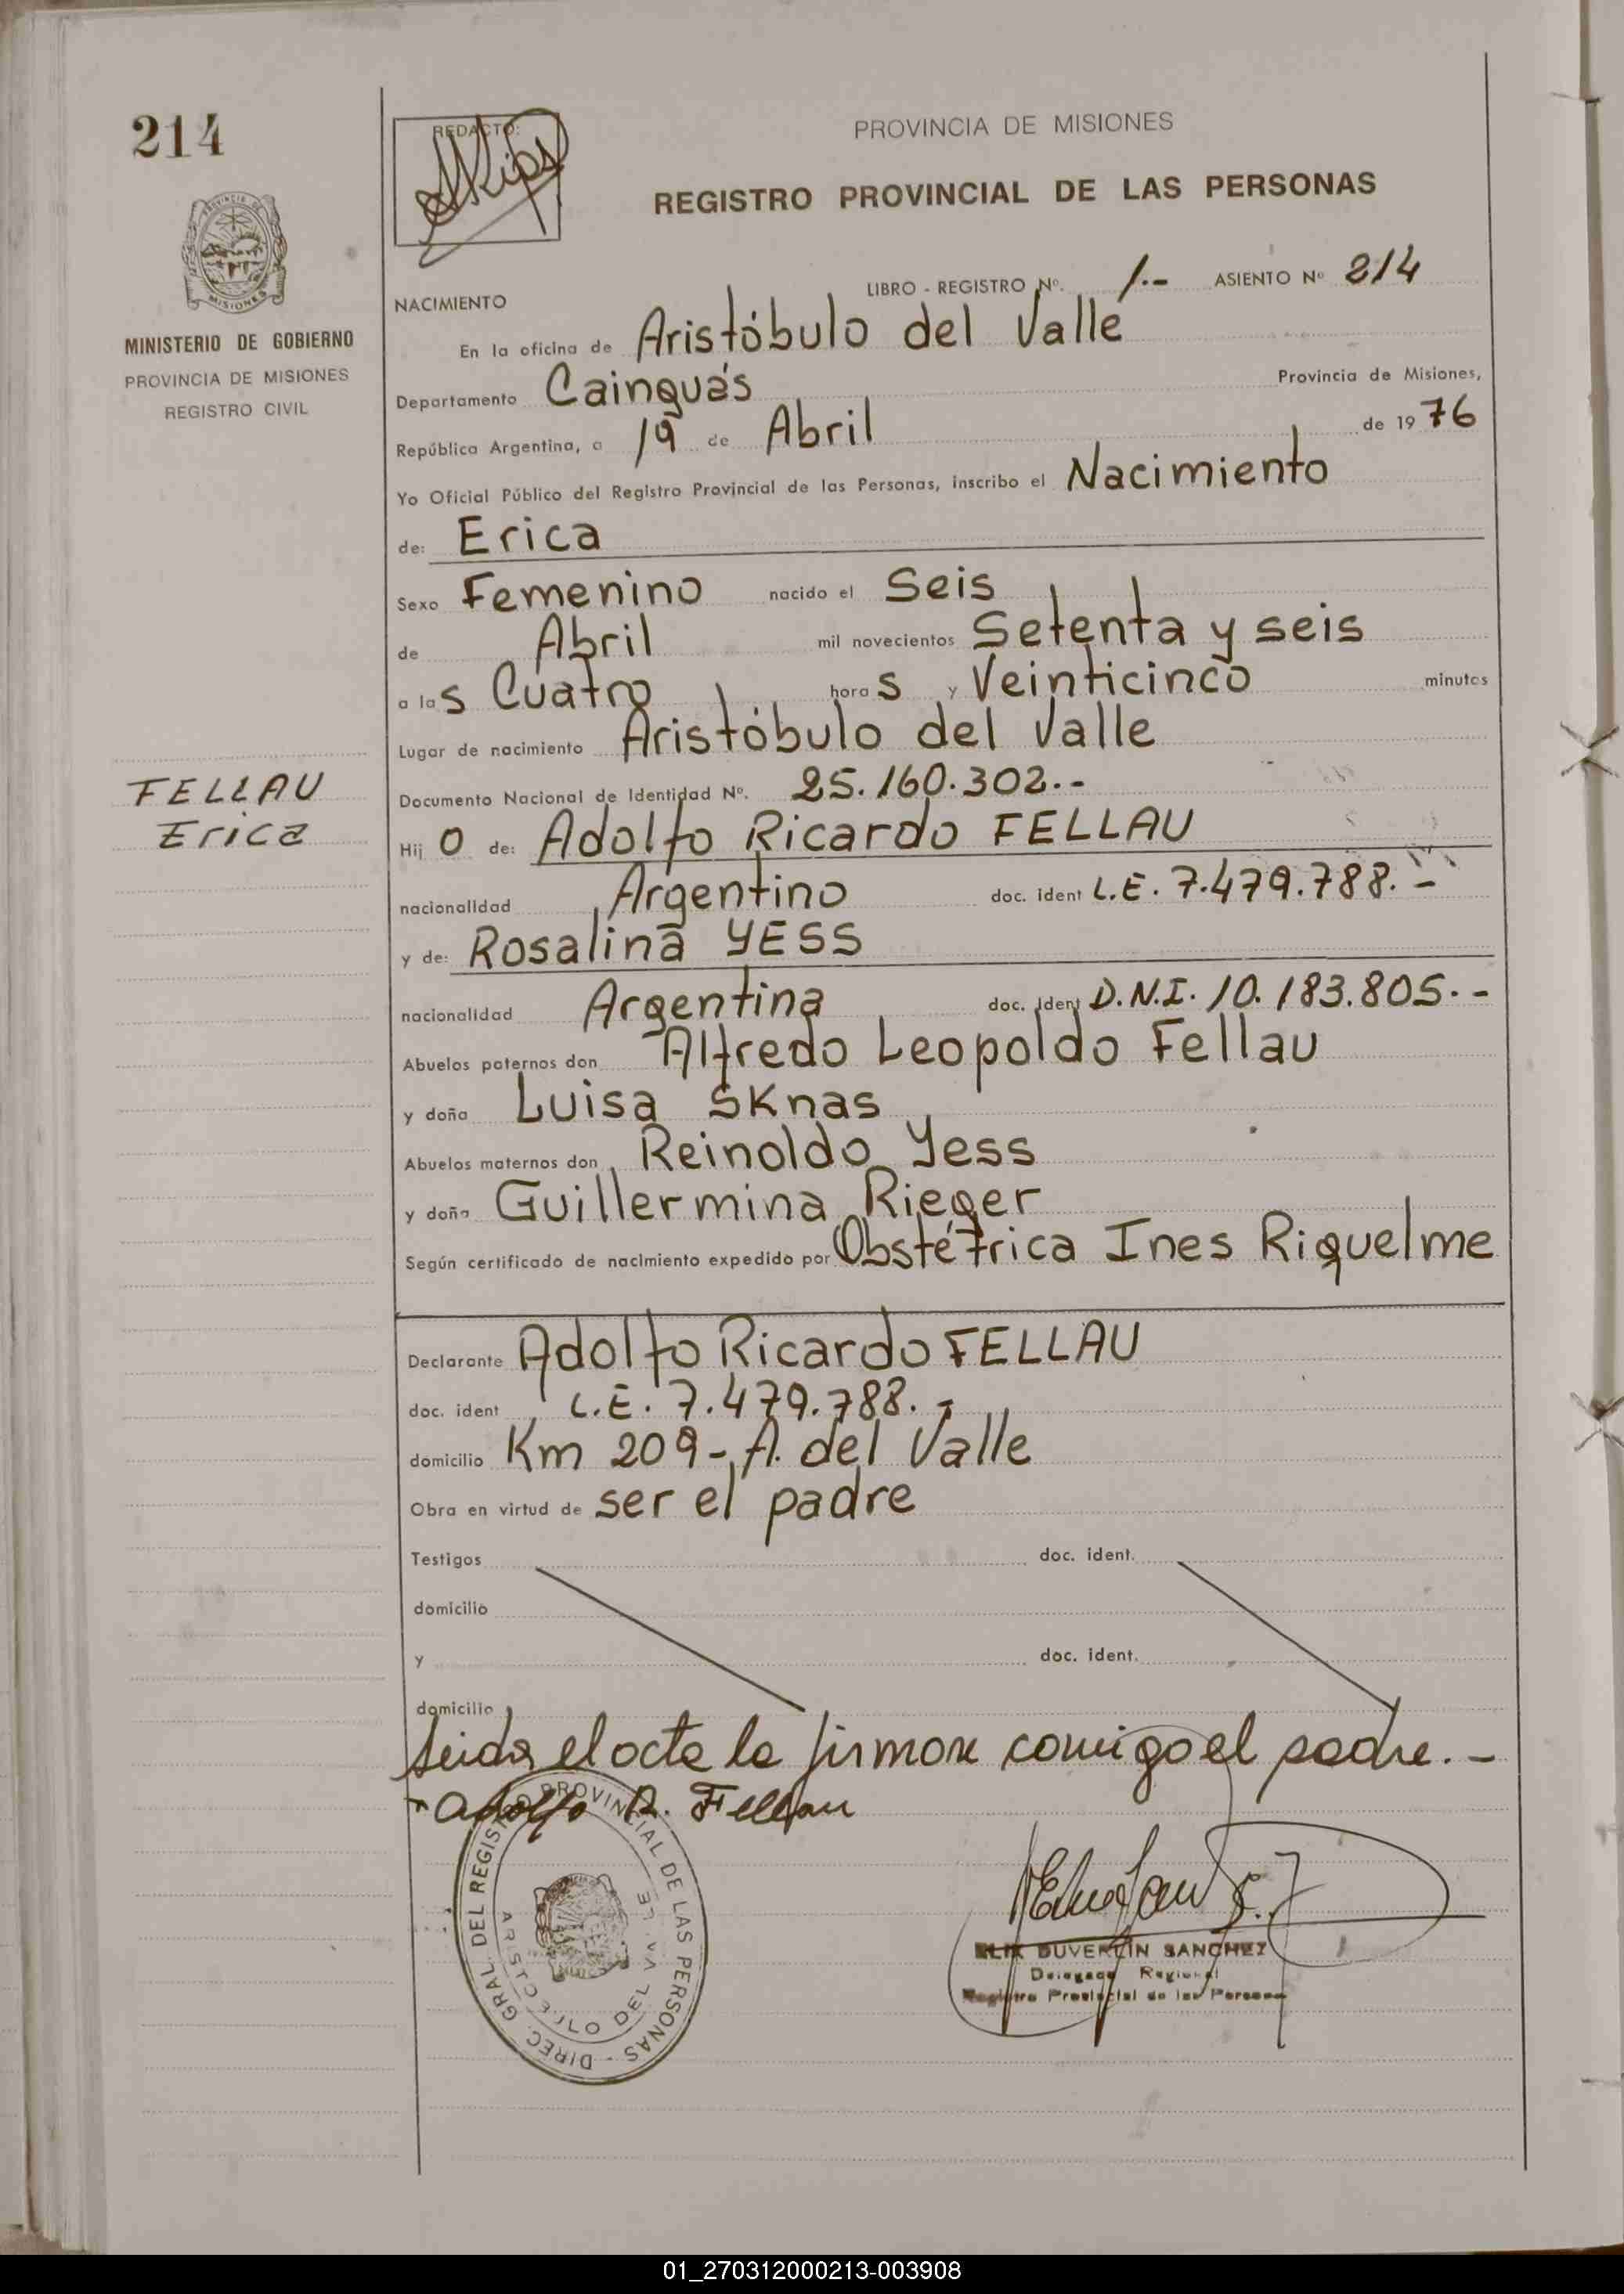 214
REDACTO:
PROVINCIA DE MISIONES
REGISTRO PROVINCIAL DE LAS PERSONAS
PROVINCIA DE
MISIONES
MINISTERIO DE GOBIERNO
PROVINCIA DE MISIONES
REGISTRO CIVIL
LIBRO - REGISTRO Nº. 1.- ASIENTO Nº 214
NACIMIENTO
En la oficina de Aristóbulo del Valle
Departamento Cainguás Provincia de Misiones,
República Argentina, a 19 de Abril de 1976
Yo Oficial Público del Registro Provincial de las Personas, inscribo el Nacimiento
de: Erica
Sexo Femenino nacido el Seis
de Abril mil novecientos Setenta y seis
a las Cuatro horas y Veinticinco minutos
Lugar de nacimiento Aristóbulo del Valle
FELLAU
Erica
Documento Nacional de Identidad Nº. 25.160.302.-
Hijo de: Adolfo Ricardo FELLAU
nacionalidad Argentino doc. ident L.E. 7.479.788.-
y de: Rosalina YESS
nacionalidad Argentina doc. ident D.N.I. 10.183.805.-
Abuelos paternos don Alfredo Leopoldo Fellau
y doña Luisa SKnas
Abuelos maternos don Reinoldo Yess
y doña Guillermina Rieger
Según certificado de nacimiento expedido por Obstétrica Ines Riquelme
Declarante Adolfo Ricardo FELLAU
doc. ident L.E. 7.479.788.-
domicilio Km 209-A. del Valle
Obra en virtud de ser el padre
Testigos doc. ident.
domicilio
y doc. ident.
domicilio
Leida el acta la firman conmigo el padre.-
Adolfo R. Fellau
DIREC. GRAL. DEL REGISTRO PROVINCIAL DE LAS PERSONAS -
ARISTOBULO DEL VALLE
DUVERLIN SANCHEZ
Delegado Regional
Registro Provincial de las Personas
01_270312000213-003908